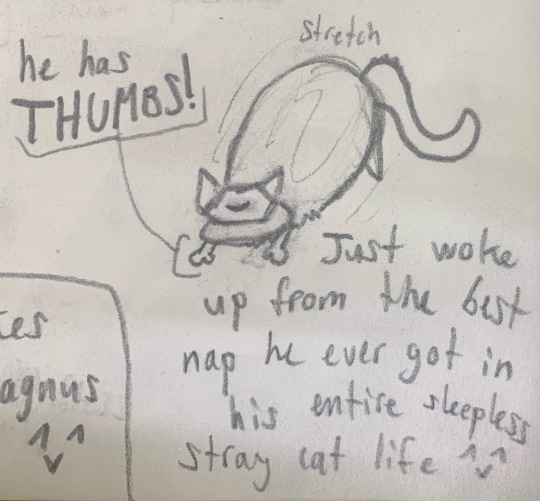 stretch
he has
THUMBS!
Just woke
up from the best
nap he ever got in
his entire sleepless
stray cat life ^v^
agnus
^v^